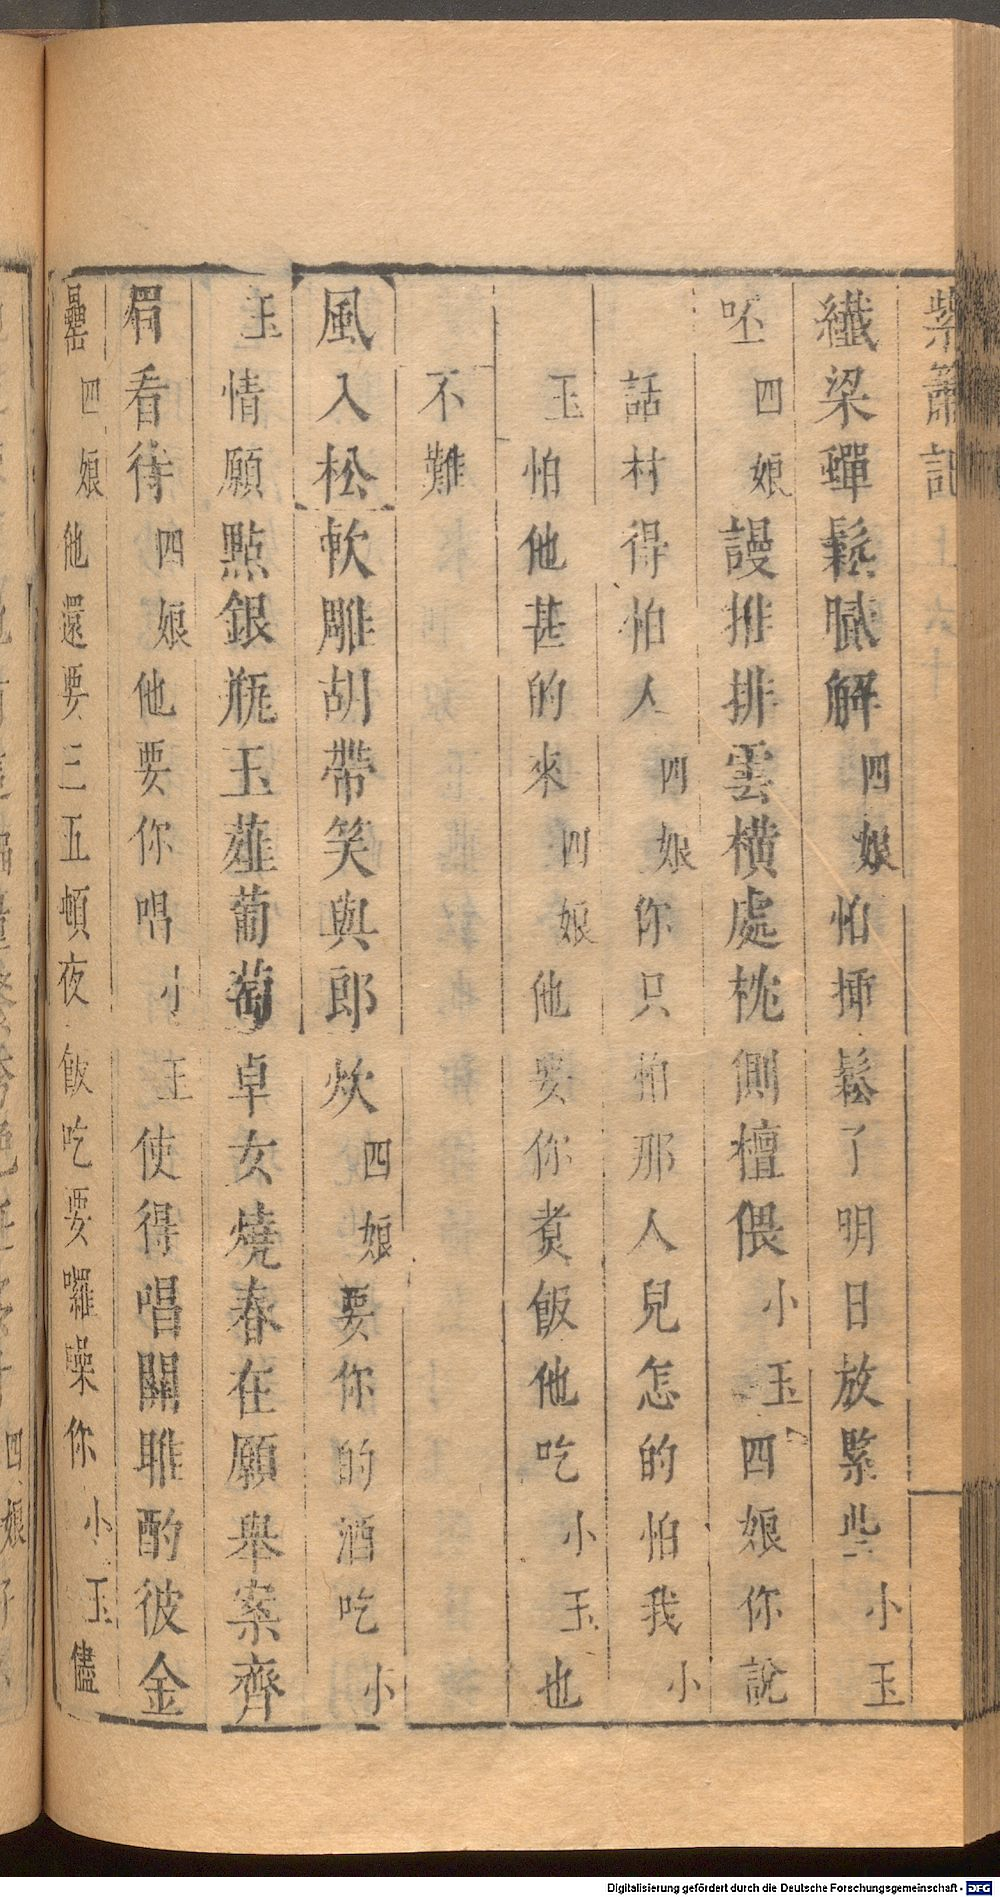 紫簫記
纎梁蟬鬆膩解四娘怕揷鬆了明日放緊些小玉
呸四娘謾推排雲橫處枕側檀偎小玉四娘你說
話村得怕人四娘你只怕那人兒怎的怕我小
玉怕他甚的來四娘他要你煮飯他吃小玉也
不難
風入松軟雕胡帶笑與郎炊四娘要你的酒吃小
玉情願點銀瓶玉薤葡萄卓女燒春在願舉案齊
眉看待四娘他要你唱小玉使得唱關雎酌彼金
罍四娘他還要三五頓夜飯吃要囉噪你小玉儘
Digitalisierung gefördert durch die Deutsche Forschungsgemeinschaft - DFG